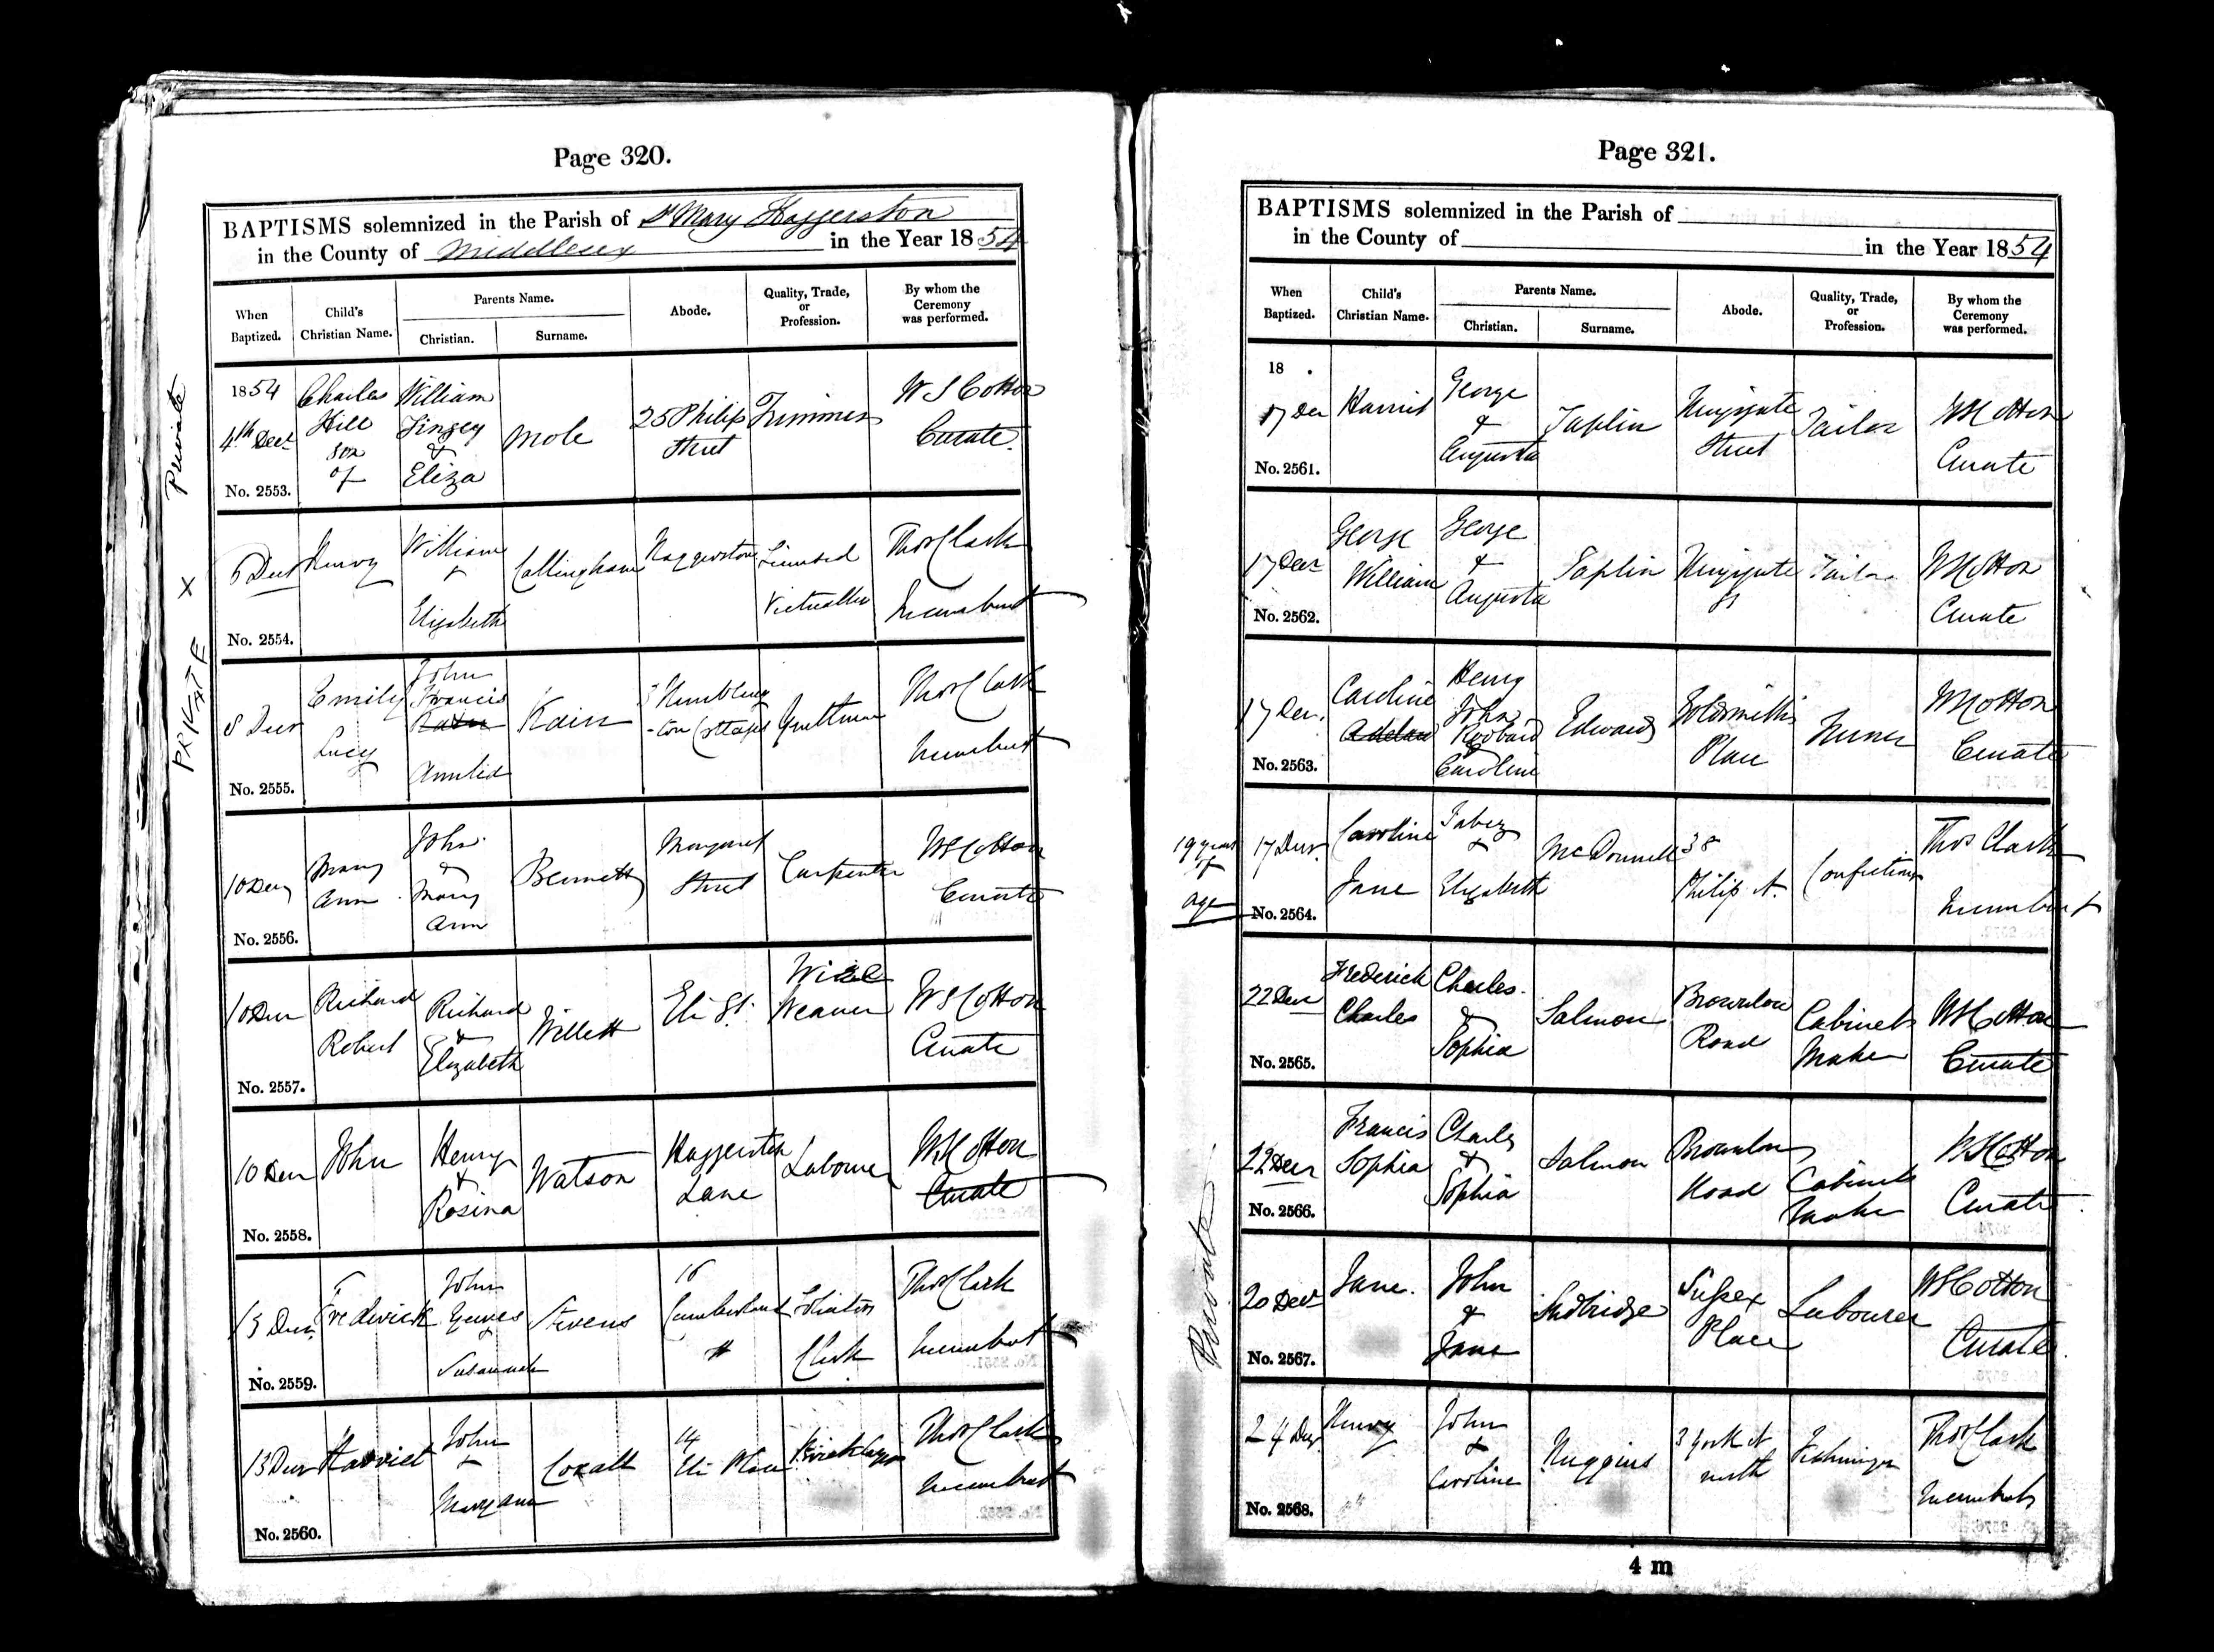 Page 320.
BAPTISMS solemnized in the Parish of St Mary Haggerston
in the County of Middlesex in the Year 1854
When Baptized.
Child's Christian Name.
Parents Name.
Christian.
Surname.
Abode.
Quality, Trade, or Profession.
By whom the Ceremony was performed.
Private
1854
4th Decr
No. 2553.
Charles
Hill
son
of
William
&
Eliza
Mole
25 Philip
Street
Trimmer
W S Cotton
Curate
PRIVATE X
6 Decr
No. 2554.
Henry
William
&
Elizabeth
Callingham
Haggerston
Licensed
Victualler
Thos Clark
Incumbent
8 Decr
No. 2555.
Emily
Lucy
John
Francis
Kain
Gentleman
Thos Clark
Incumbent
10 Dec
No. 2556.
Mary
Ann
John
&
Mary
Ann
Bennett
Margaret
Street
Carpenter
W S Cotton
Curate
10 Decr
No. 2557.
Richard
Robert
Richard
&
Elizabeth
Willett
Eli St
Weaver
W S Cotton
Curate
10 Decr
No. 2558.
John
Henry
&
Rosina
Watson
Haggerston
Lane
Labourer
W S Cotton
Curate
13 Decr
No. 2559.
Frederick
John
&
Susannah
Stevens
16
Cumberland
St
Clerk
Thos Clark
Incumbent
13 Decr
No. 2560.
Harriet
John
&
Mary Ann
Coxall
14
Eli Place
Bricklayer
Thos Clark
Incumbent
Page 321.
BAPTISMS solemnized in the Parish of
in the County of in the Year 1854
When Baptized.
Child's Christian Name.
Parents Name.
Christian.
Surname.
Abode.
Quality, Trade, or Profession.
By whom the Ceremony was performed.
18 .
17 Dec
No. 2561.
Harriet
George
&
Augusta
Taplin
Kingsgate
Street
Tailor
W S Cotton
Curate
17 Decr
No. 2562.
George
William
George
&
Augusta
Taplin
Kingsgate
St
Tailor
W S Cotton
Curate
17 Dec.
No. 2563.
Caroline
Henry
John
&
Caroline
Edwards
Goldsmiths
Place
Turner
W S Cotton
Curate
19 years
of
age
17 Decr.
No. 2564.
Caroline
Jane
Jabez
&
Elizabeth
McDonnell
38
Philip St.
Confectioner
Thos Clark
Incumbent
22 Decr
No. 2565.
Frederick
Charles
Charles
&
Sophia
Salmon
Brownlow
Road
Cabinet
Maker
W S Cotton
Curate
22 Decr
No. 2566.
Francis
Sophia
Charles
&
Sophia
Salmon
Brownlow
Road
Cabinet
Maker
W S Cotton
Curate
Private
20 Decr
No. 2567.
Jane.
John
&
Jane
Sussex
Place
Labourer
W S Cotton
Curate
24 Decr
No. 2568.
Henry
John
&
Caroline
Huggins
3 York St
north
Fishmonger
Thos Clark
Incumbent
4 m